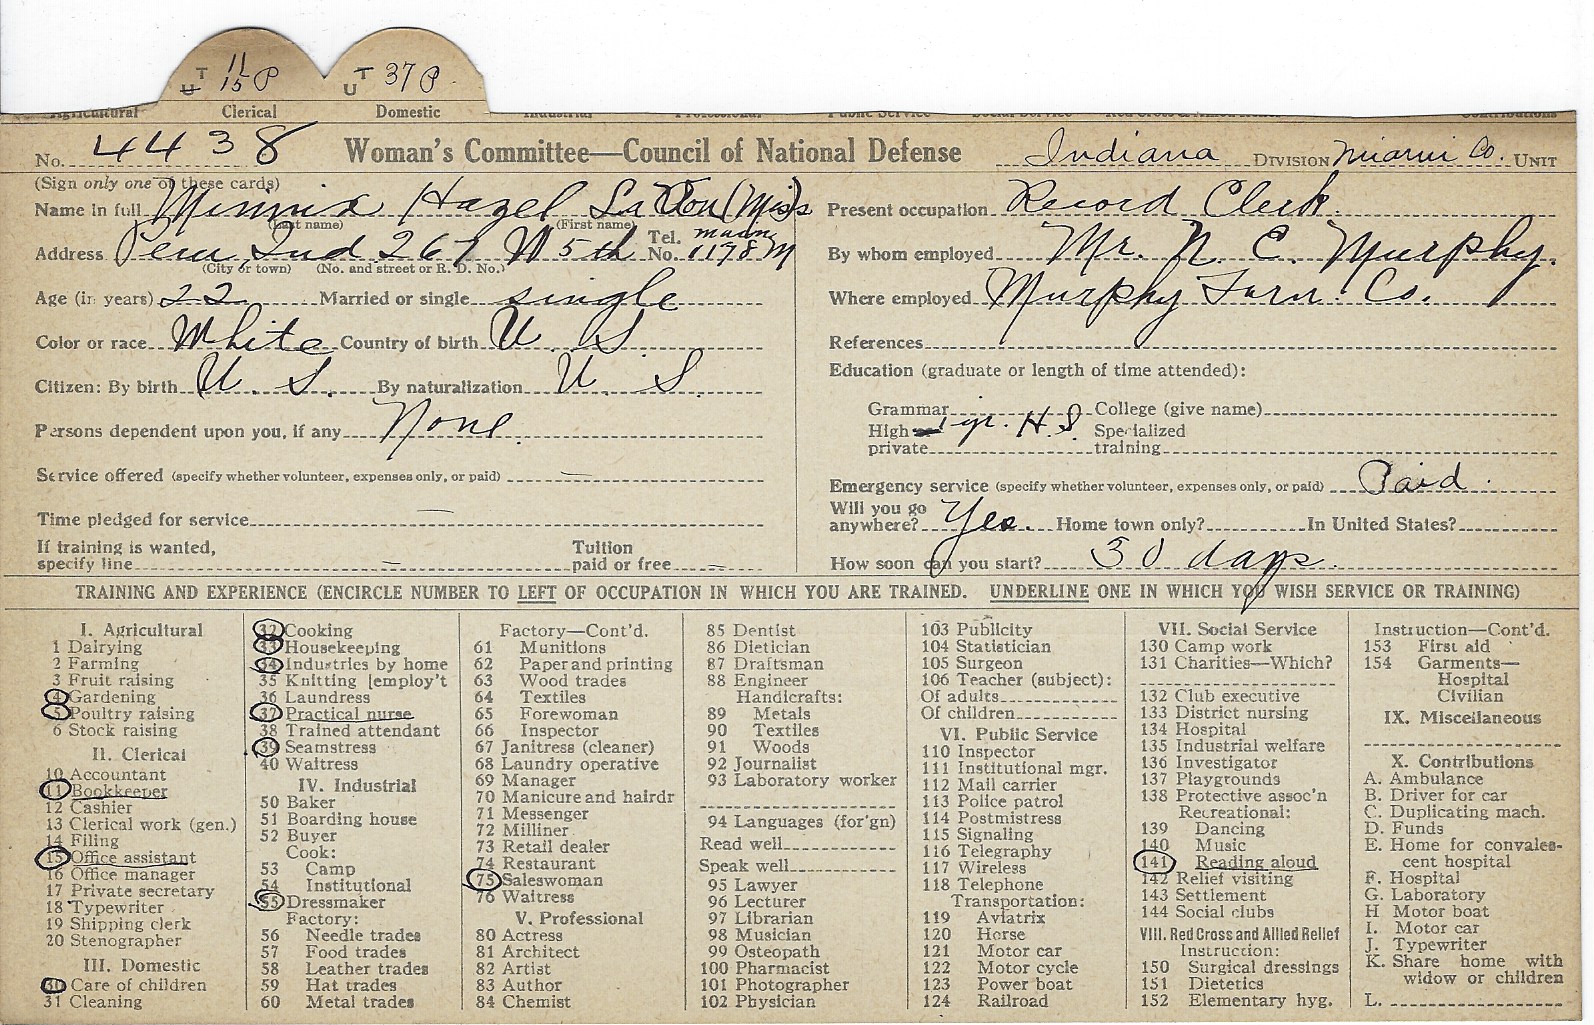 T 11 P T 37 P
U 15 U
Agricultural Clerical Domestic Industrial Professional Public Service Social Service Contributions
No. 4438 Woman's Committee—Council of National Defense Indiana DIVISION Miami Co. UNIT
(Sign only one of these cards)
Name in full Minnix Hazel La Von (Miss)
(Last name) (First name)
Address Peru Ind 267 W 5th Tel. No. main 1178 M
(City or town) (No. and street or R. D. No.)
Age (in years) 22 Married or single single
Color or race White Country of birth U. S.
Citizen: By birth U. S. By naturalization U. S.
Persons dependent upon you, if any None.
Service offered (specify whether volunteer, expenses only, or paid) —
Time pledged for service —
If training is wanted, specify line — Tuition paid or free —
Present occupation Record Clerk.
By whom employed Mr. N. E. Murphy.
Where employed Murphy Furn. Co.
References
Education (graduate or length of time attended):
Grammar College (give name)
High 1 yr. H. S. Specialized
private training
Emergency service (specify whether volunteer, expenses only, or paid) Paid.
Will you go anywhere? Yes. Home town only? In United States?
How soon can you start? 30 days.
TRAINING AND EXPERIENCE (ENCIRCLE NUMBER TO LEFT OF OCCUPATION IN WHICH YOU ARE TRAINED. UNDERLINE ONE IN WHICH YOU WISH SERVICE OR TRAINING)
I. Agricultural
1 Dairying
2 Farming
3 Fruit raising
4 Gardening
5 Poultry raising
6 Stock raising
II. Clerical
10 Accountant
11 Bookkeeper
12 Cashier
13 Clerical work (gen.)
14 Filing
15 Office assistant
16 Office manager
17 Private secretary
18 Typewriter
19 Shipping clerk
20 Stenographer
III. Domestic
30 Care of children
31 Cleaning
32 Cooking
33 Housekeeping
34 Industries by home
35 Knitting [employ't
36 Laundress
37 Practical nurse
38 Trained attendant
39 Seamstress
40 Waitress
IV. Industrial
50 Baker
51 Boarding house
52 Buyer
Cook:
53 Camp
54 Institutional
55 Dressmaker
Factory:
56 Needle trades
57 Food trades
58 Leather trades
59 Hat trades
60 Metal trades
Factory—Cont'd.
61 Munitions
62 Paper and printing
63 Wood trades
64 Textiles
65 Forewoman
66 Inspector
67 Janitress (cleaner)
68 Laundry operative
69 Manager
70 Manicure and hairdr
71 Messenger
72 Milliner
73 Retail dealer
74 Restaurant
75 Saleswoman
76 Waitress
V. Professional
80 Actress
81 Architect
82 Artist
83 Author
84 Chemist
85 Dentist
86 Dietician
87 Draftsman
88 Engineer
Handicrafts:
89 Metals
90 Textiles
91 Woods
92 Journalist
93 Laboratory worker
94 Languages (for'gn)
Read well
Speak well
95 Lawyer
96 Lecturer
97 Librarian
98 Musician
99 Osteopath
100 Pharmacist
101 Photographer
102 Physician
103 Publicity
104 Statistician
105 Surgeon
106 Teacher (subject):
Of adults
Of children
VI. Public Service
110 Inspector
111 Institutional mgr.
112 Mail carrier
113 Police patrol
114 Postmistress
115 Signaling
116 Telegraphy
117 Wireless
118 Telephone
Transportation:
119 Aviatrix
120 Horse
121 Motor car
122 Motor cycle
123 Power boat
124 Railroad
VII. Social Service
130 Camp work
131 Charities—Which?
132 Club executive
133 District nursing
134 Hospital
135 Industrial welfare
136 Investigator
137 Playgrounds
138 Protective assoc'n
Recreational:
139 Dancing
140 Music
141 Reading aloud
142 Relief visiting
143 Settlement
144 Social clubs
VIII. Red Cross and Allied Relief
Instruction:
150 Surgical dressings
151 Dietetics
152 Elementary hyg.
Instruction—Cont'd.
153 First aid
154 Garments—
Hospital
Civilian
IX. Miscellaneous
X. Contributions
A. Ambulance
B. Driver for car
C. Duplicating mach.
D. Funds
E. Home for convales-
cent hospital
F. Hospital
G. Laboratory
H Motor boat
I. Motor car
J. Typewriter
K. Share home with
widow or children
L.